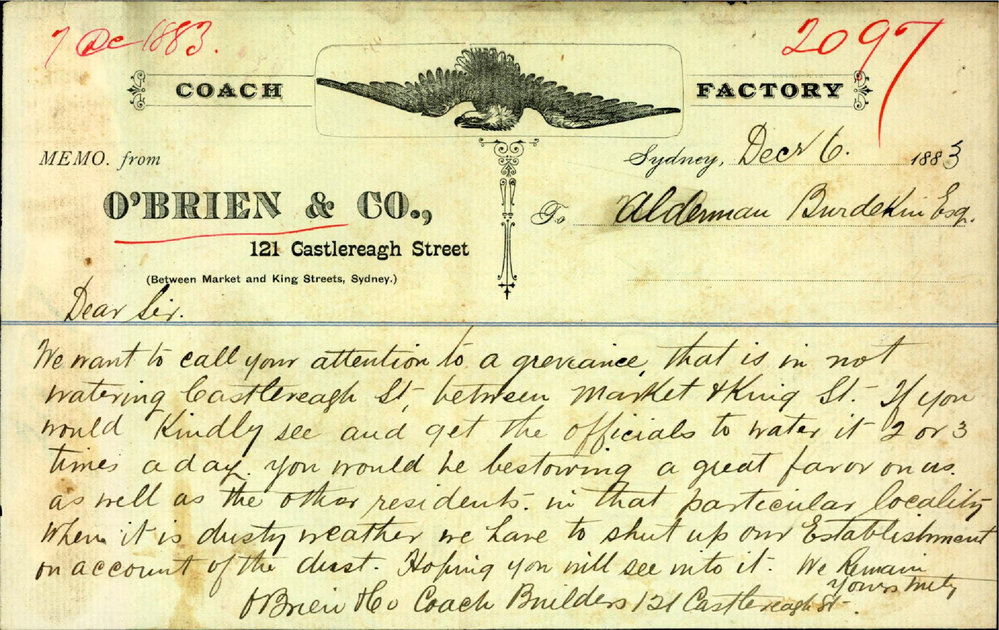 7 Dec 1883.
2097
COACH FACTORY
MEMO. from
Sydney, Decr 6. 1883
O'BRIEN & CO.,
To Alderman Burdekin Esq.
121 Castlereagh Street
(Between Market and King Streets, Sydney.)
Dear Sir.
We want to call your attention to a greviance, that is in not
watering Castlereagh St, between Market & King St. If you
would Kindly see and get the officials to water it 2 or 3
times a day. you would be bestowing a great favor on us.
as well as the other residents. in that particular locality
When it is dusty weather we have to shut up our Establishment
on account of the dust. Hoping you will see into it. We Remain
Yours
O'Brien & Co Coach Builders 121 Castlereagh St.